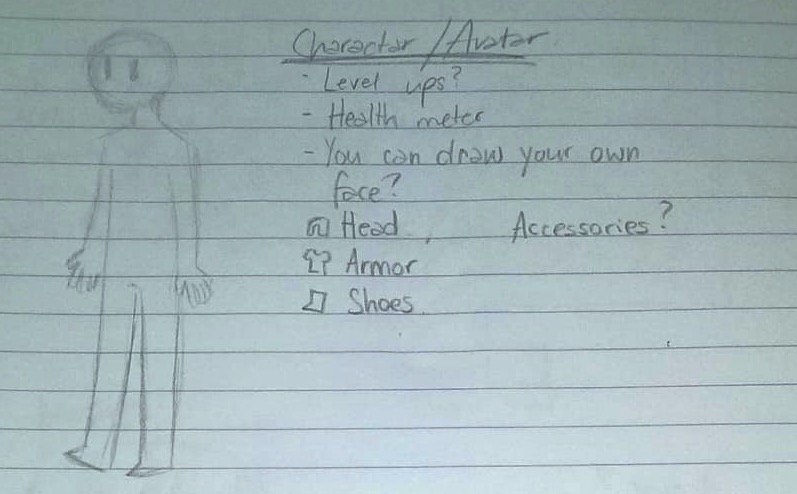 Character/Avatar
- Level ups?
- Health meter
- You can draw your own
face?
Head, Accessories?
Armor
Shoes